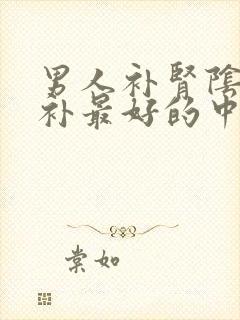 男人补肾陰
补最好的中
棠如